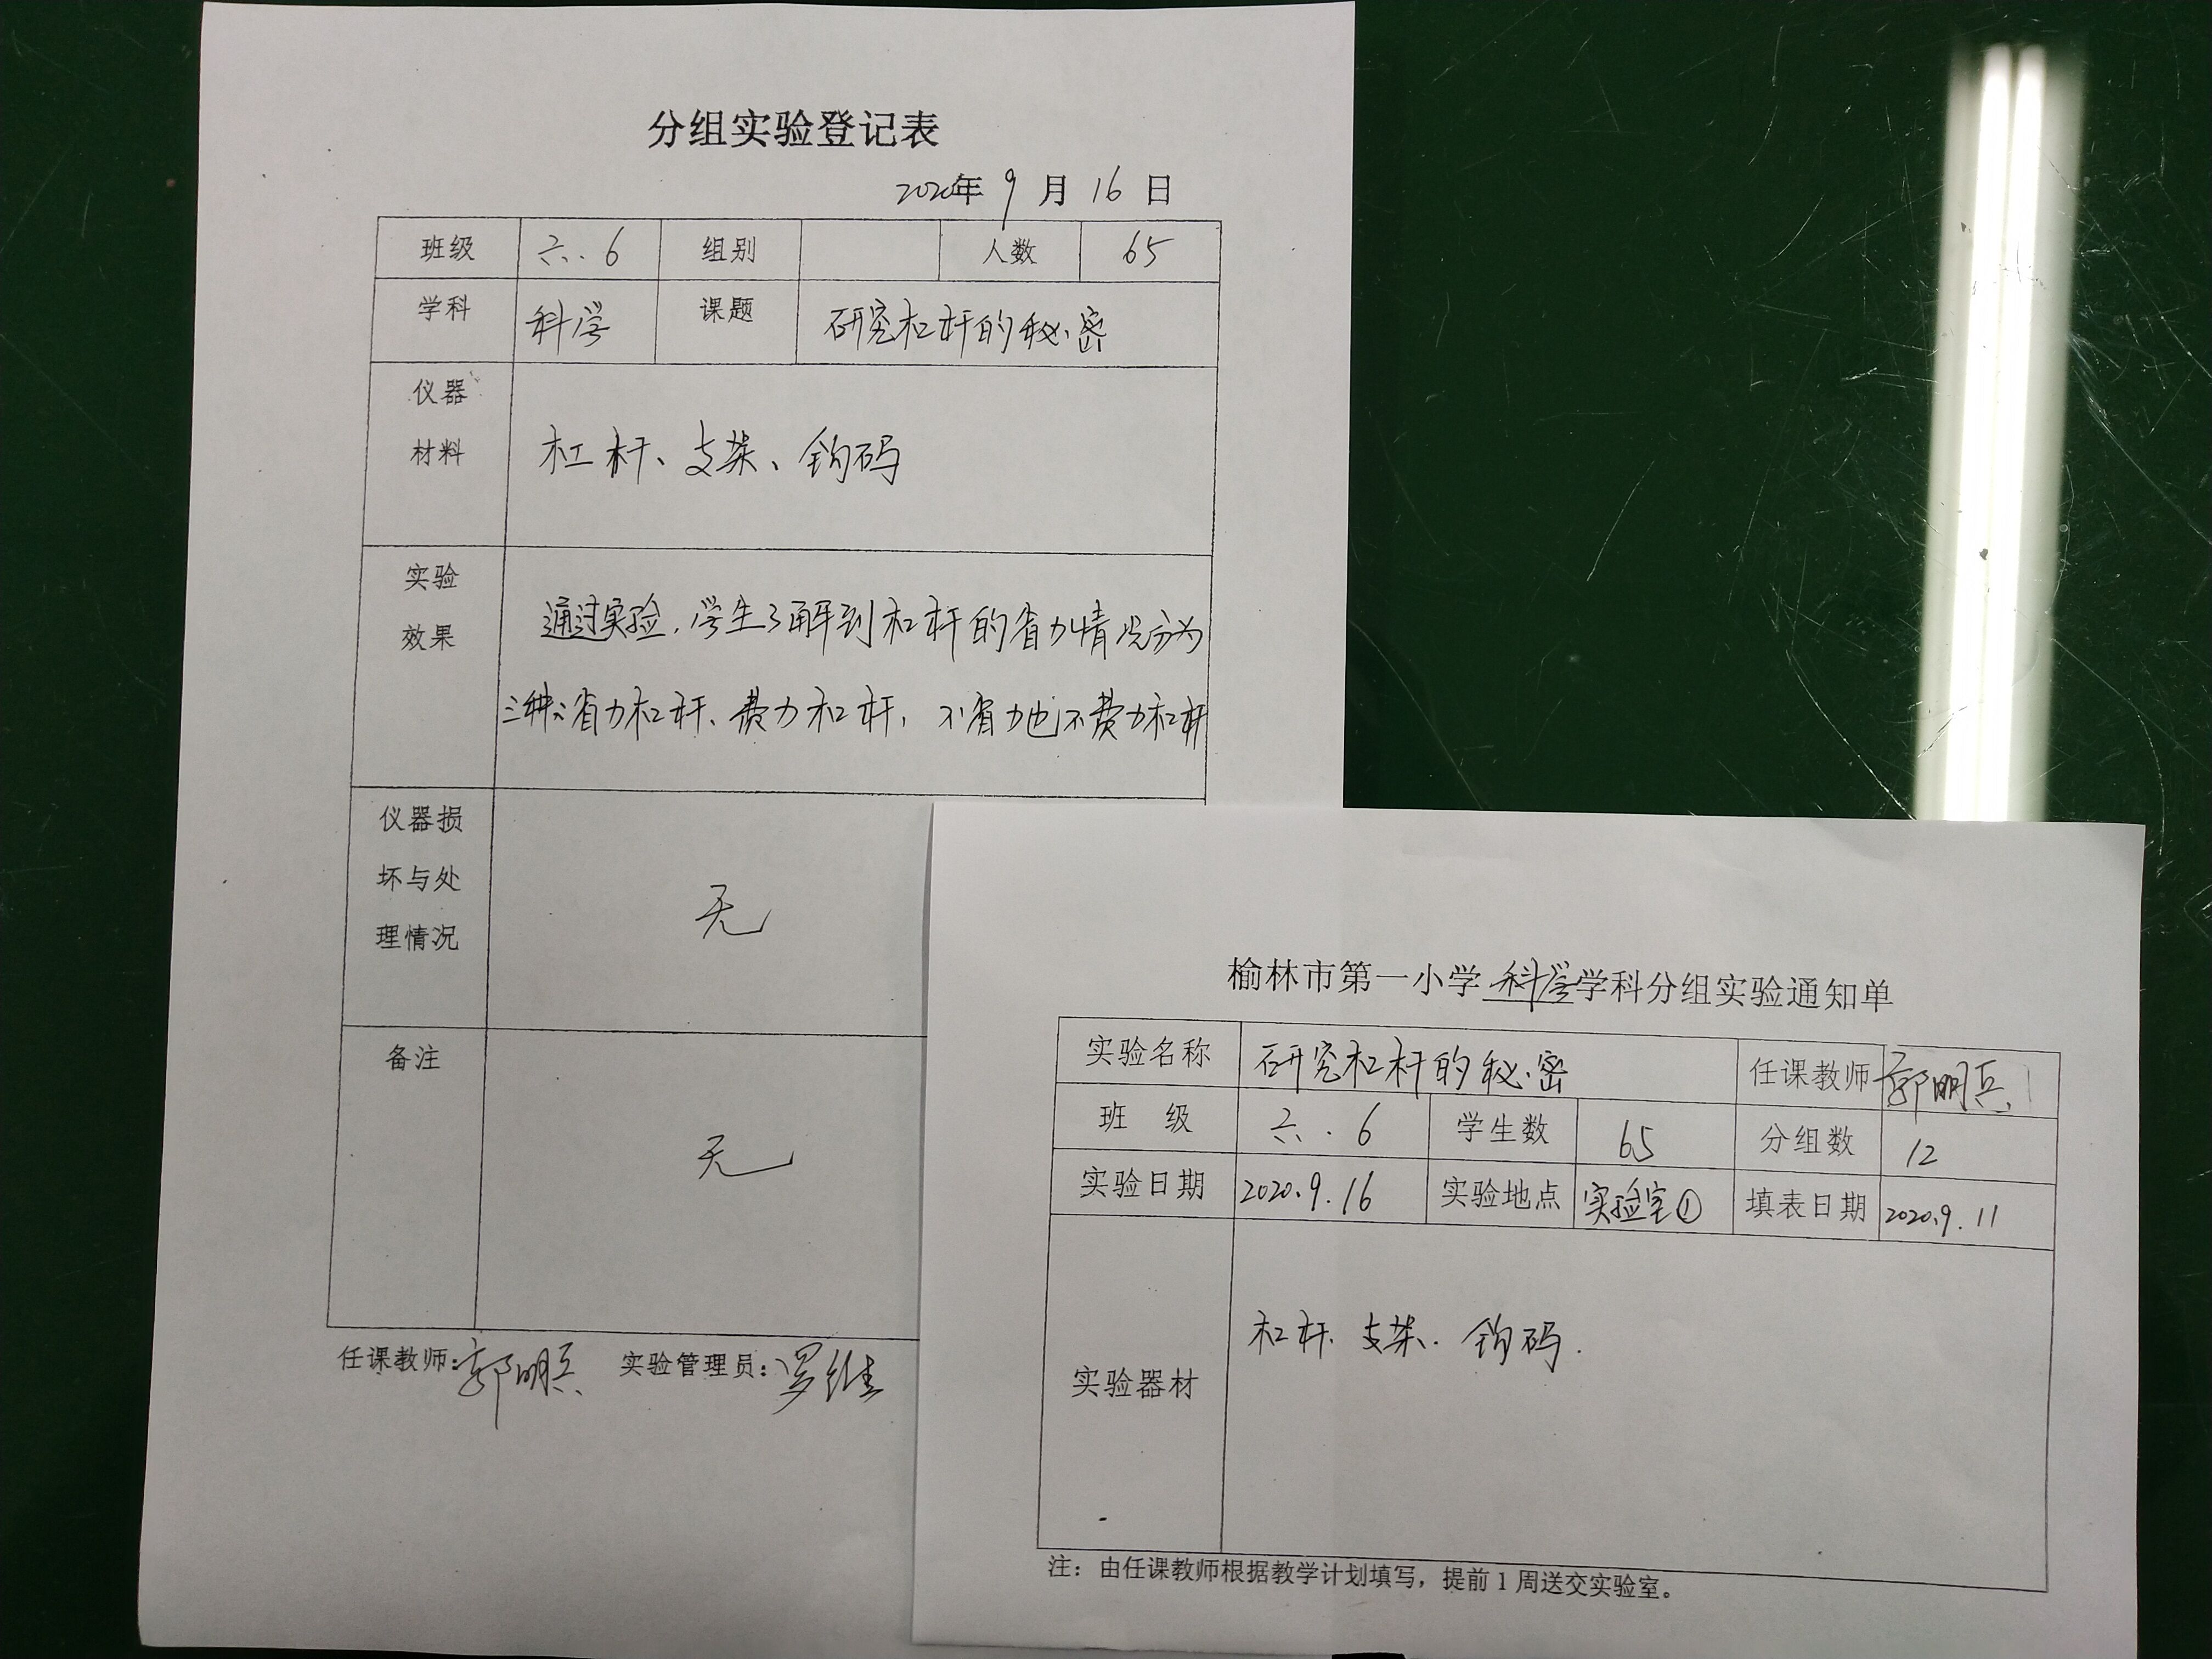 分组实验登记表
2020年 9 月 16 日
班级 六.6 组别 人数 65
学科 科学 课题 研究杠杆的秘密
仪器
材料 杠杆、支架、钩码
实验 通过实验,学生了解到杠杆的省力情况分为
效果 三种:省力杠杆、费力杠杆,不省力也不费力杠杆
仪器损
坏与处 无
理情况
备注
无
任课教师:郭明兵 实验管理员:罗维
榆林市第一小学科学学科分组实验通知单
实验名称 研究杠杆的秘密 任课教师 郭明兵
班 级 六.6 学生数 65 分组数 12
实验日期 2020.9.16 实验地点 实验室① 填表日期 2020.9.11
杠杆、支架、钩码.
实验器材
注:由任课教师根据教学计划填写,提前1周送交实验室。